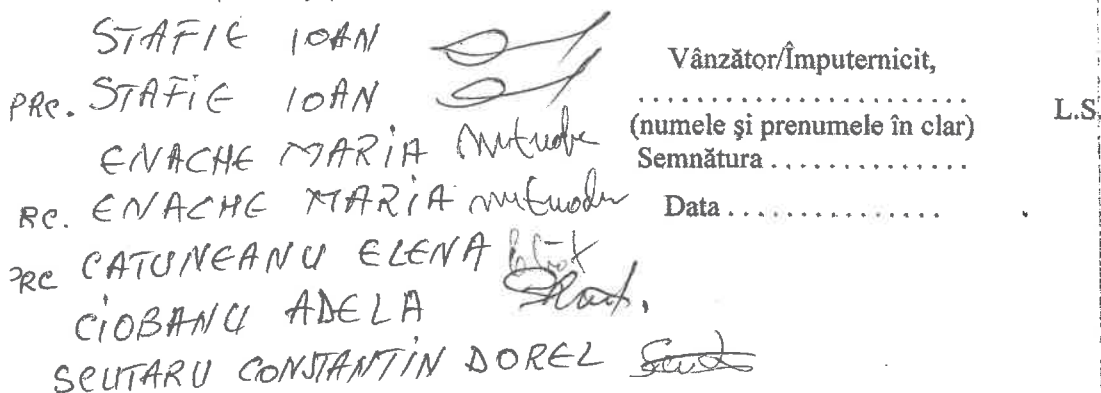 STAFIE IOAN
PRC. STAFIE IOAN
ENACHE MARIA
RC. ENACHE MARIA
PRC CATUNEANU ELENA
CIOBANU ADELA
SCUTARU CONSTANTIN DOREL
Vânzător/Împuternicit,
.......................
(numele şi prenumele în clar)
Semnătura ..............
Data ................
L.S.